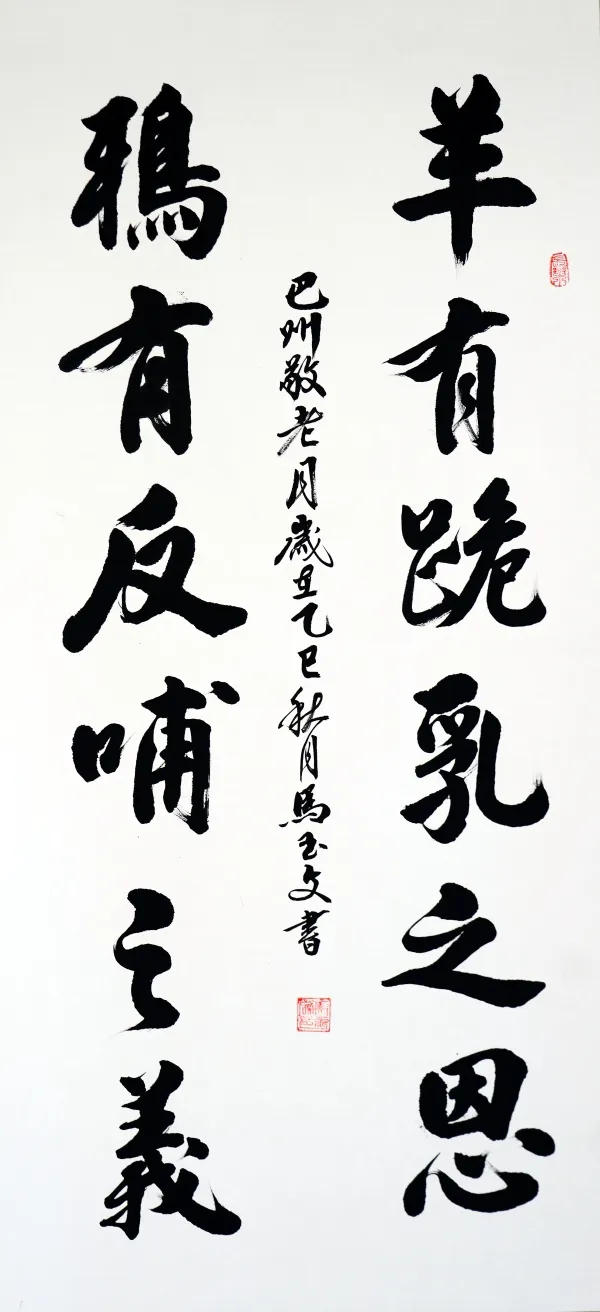 羊有跪乳之恩
鴉有反哺之義
巴州敬老月歲旦乙巳秋月馬玉文書